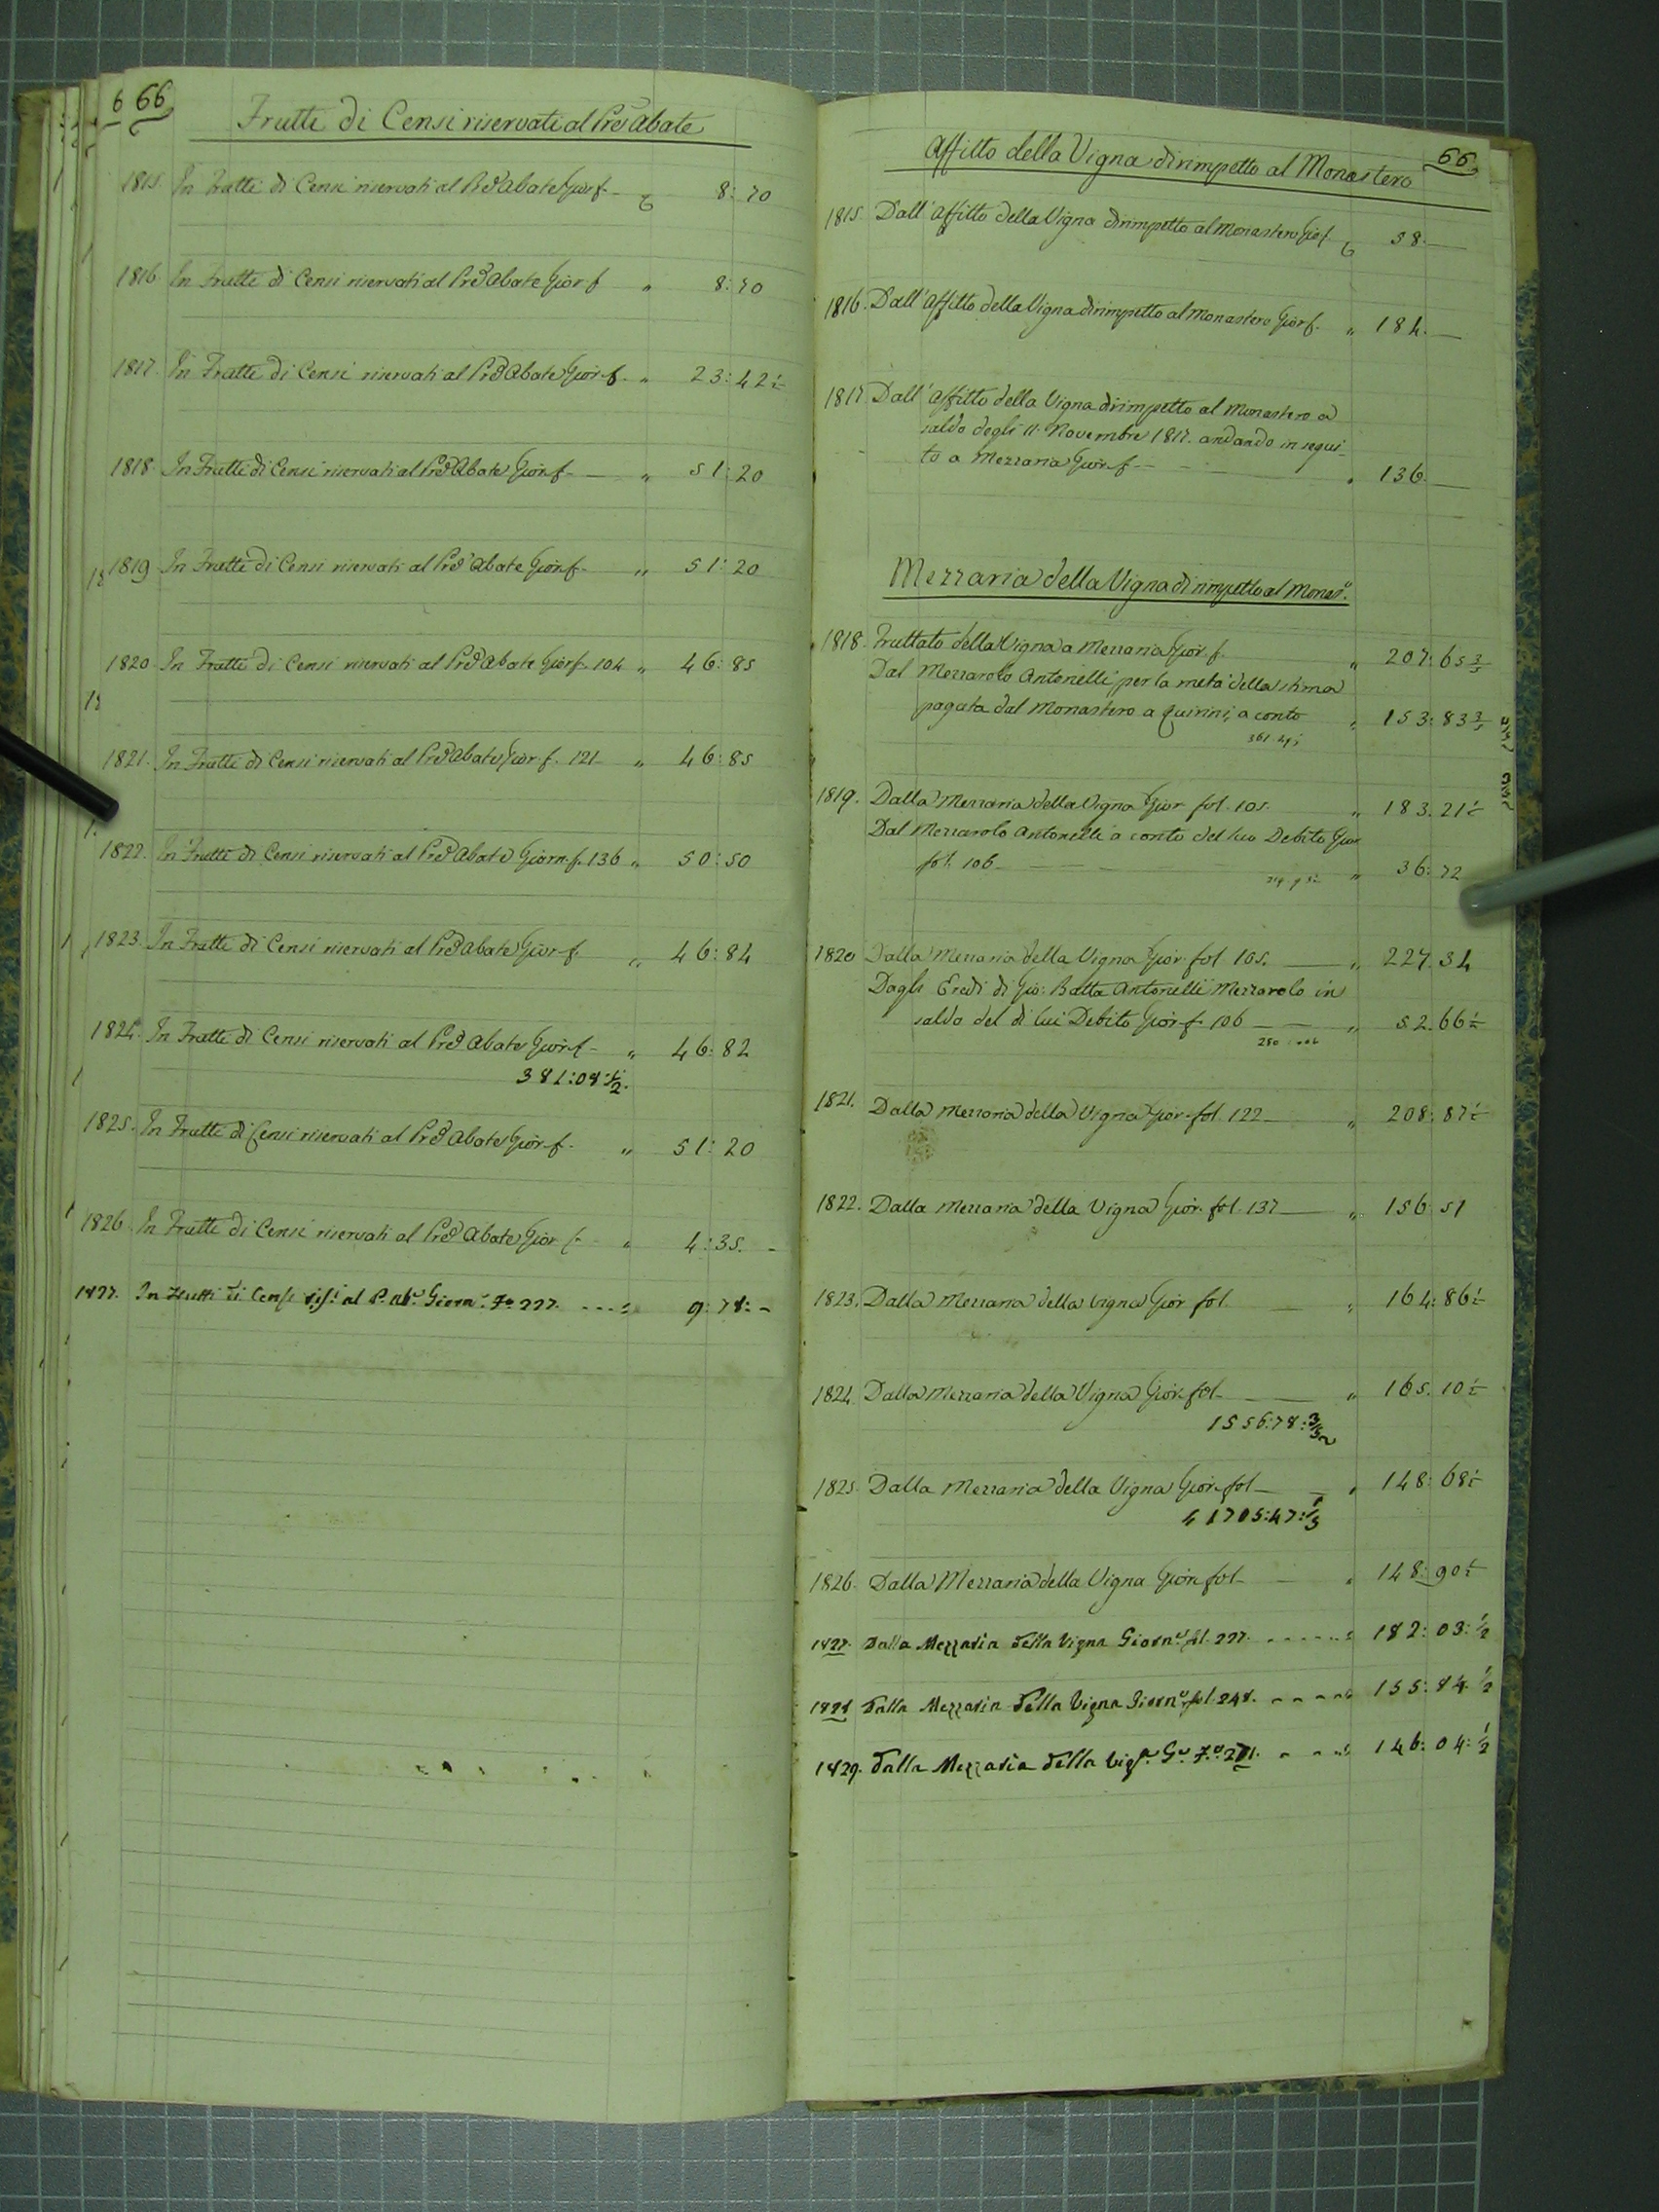 66
Frutti di Censi riservati al Pre Abate
1815. In Frutti di Censi riservati al Pre Abate Gior f. 8:70
1816 In Frutti di Censi riservati al Pre Abate Gior f " 8:70
1817. In Frutti di Censi riservati al Pre Abate Gior. f. " 23:42½
1818 In Frutti di Censi riservati al Pre Abate Gior. f. — " 51:20
1819 In Frutti di Censi riservati al Pre Abate Gior. f. " 51:20
1820 In Frutti di Censi riservati al Pre Abate Gior f. 104 " 46:85
1821. In Frutti di Censi riservati al Pre Abate Gior. f. 121 " 46:85
1822. In Frutti di Censi riservati al Pre Abate Giorn. f. 136 " 50:50
1823. In Frutti di Censi riservati al Pre Abate Gior f. " 46:84
1824. In Frutti di Censi riservati al Pre Abate Gior. f. " 46:82
381:08:½.
1825. In Frutti di Censi riservati al Pre Abate Gior. f. " 51:20
1826 In Frutti di Censi riservati al Pre Abate Gior f. " 4:35. -
1827. In Frutti di Censi ris.i al P. Ab.e Giorn.e Fo 227. 9:78: -
66
Affitto della Vigna dirimpetto al Monastero
1815. Dall' Affitto della Vigna dirimpetto al Monastero Gio f. 58. —
1816. Dall' Affitto della Vigna dirimpetto al Monastero Gior f. " 184. —
1817 Dall' Affitto della Vigna dirimpetto al Monastero a
saldo degli 11. Novembre 1817. andando in segui-
to a Mezzaria Gior. f. " 136. —
Mezzaria della Vigna dirimpetto al Monas.o
1818. Fruttato della Vigna a Mezzaria Gior. f. " 207:65 3/5
Dal Mezzarolo Antonelli per la metà della stima
pagata dal Monastero a Quirini, a conto " 153:83 3/5
1819. Dalla Mezzaria della Vigna Gior fol. 105. " 183.21½
Dal Mezzarolo Antonelli a conto del suo Debito Gior
fol. 106 — " 36:72
1820 Dalla Mezzaria della Vigna Gior. fol 105. — " 227.34
Dagli Eredi di Gio: Batta Antonelli Mezzarolo in
saldo del di lui Debito Gior f. 106 — " 52.66½
1821. Dalla Mezzaria della Vigna Gior. fol. 122 — " 208:87½
1822. Dalla Mezzaria della Vigna Gior. fol. 137 — " 156:51
1823. Dalla Mezzaria della Vigna Gior fol. — " 164:86½
1824. Dalla Mezzaria della Vigna Gior. fol. — " 165.10½
1556:78:
1825. Dalla Mezzaria della Vigna Gior. fol — " 148:68½
1705:47:
1826. Dalla Mezzaria della Vigna Gior. fol. — " 148:90½
1827. Dalla Mezzaria della Vigna Giorn.e fol. 227. 182:03:½
1828 Dalla Mezzaria della Vigna Giorn.e fol. 248. 155:84 ½
1829. Dalla Mezzaria della Vig.a G.e F.o 271. 146:04:½